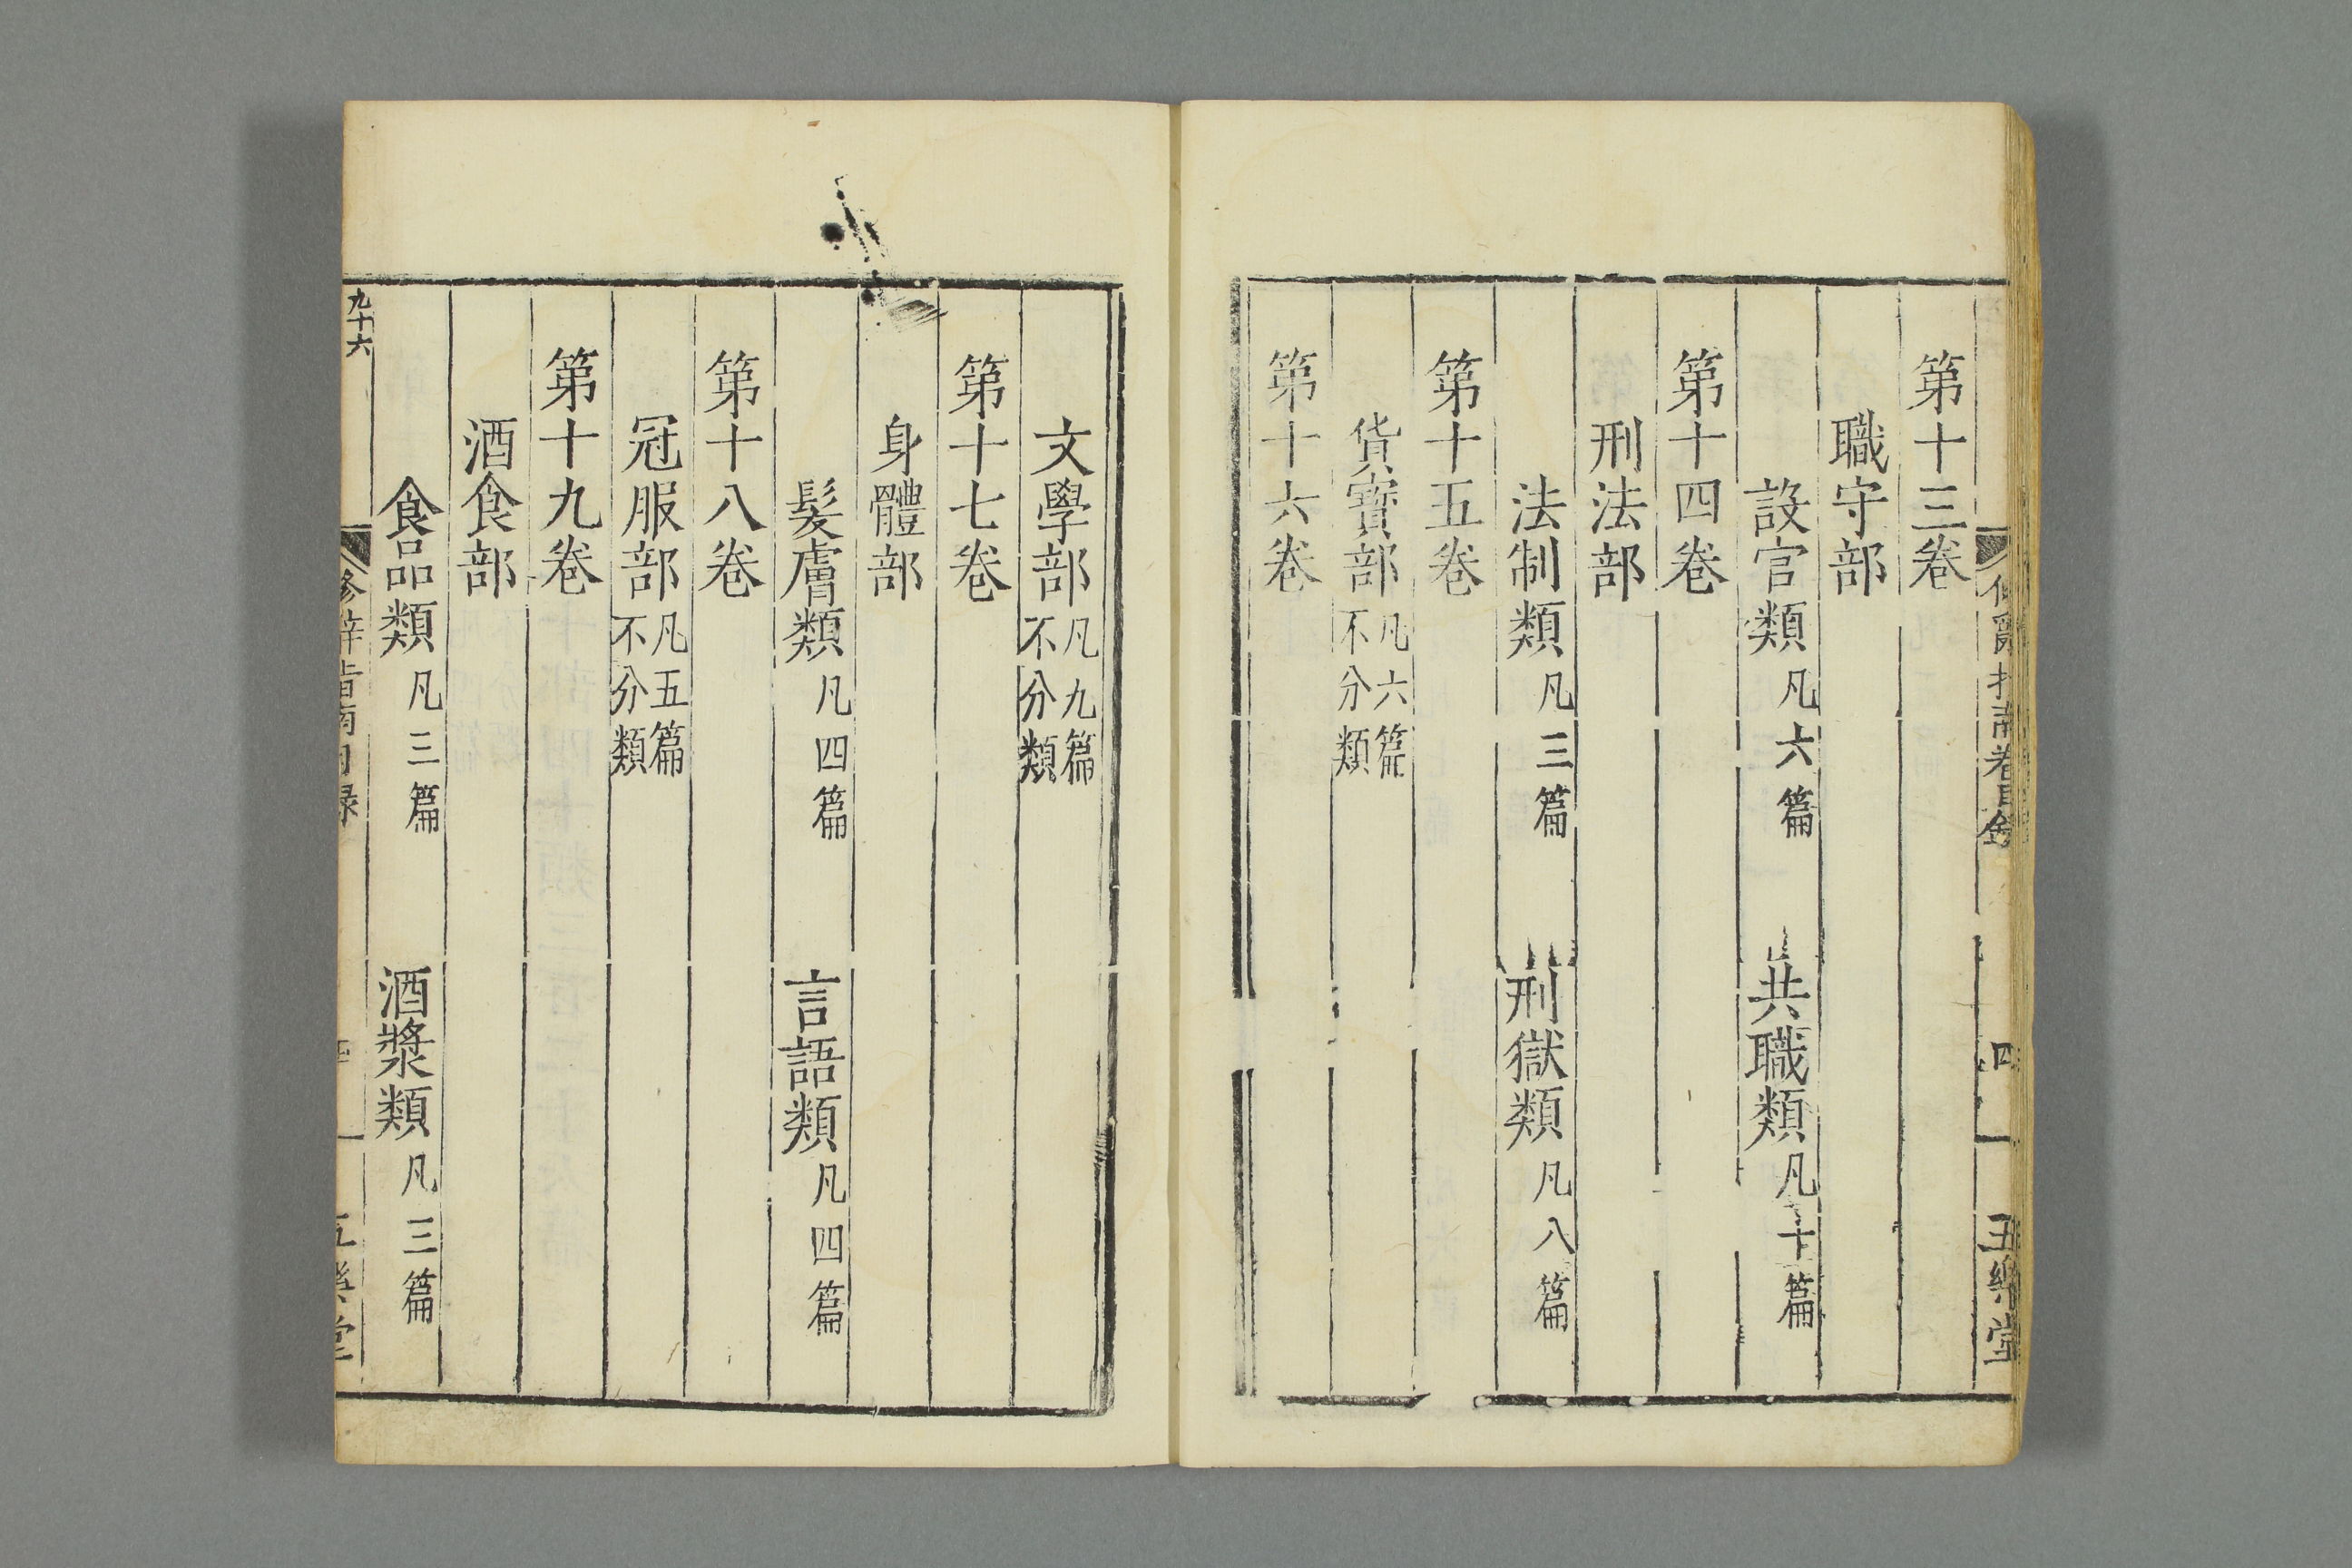 第十三卷
職守部
設官類 凡六篇 共職類 凡十篇
第十四卷
刑法部
法制類 凡三篇 刑獄類 凡八篇
第十五卷
貨寶部 凡六篇 不分類
第十六卷
四 五樂堂
文學部 凡九篇 不分類
第十七卷
身體部
髮膚類 凡四篇 言語類 凡四篇
第十八卷
冠服部 凡五篇 不分類
第十九卷
酒食部
食品類 凡三篇 酒漿類 凡三篇
九十六 修辭指南目録